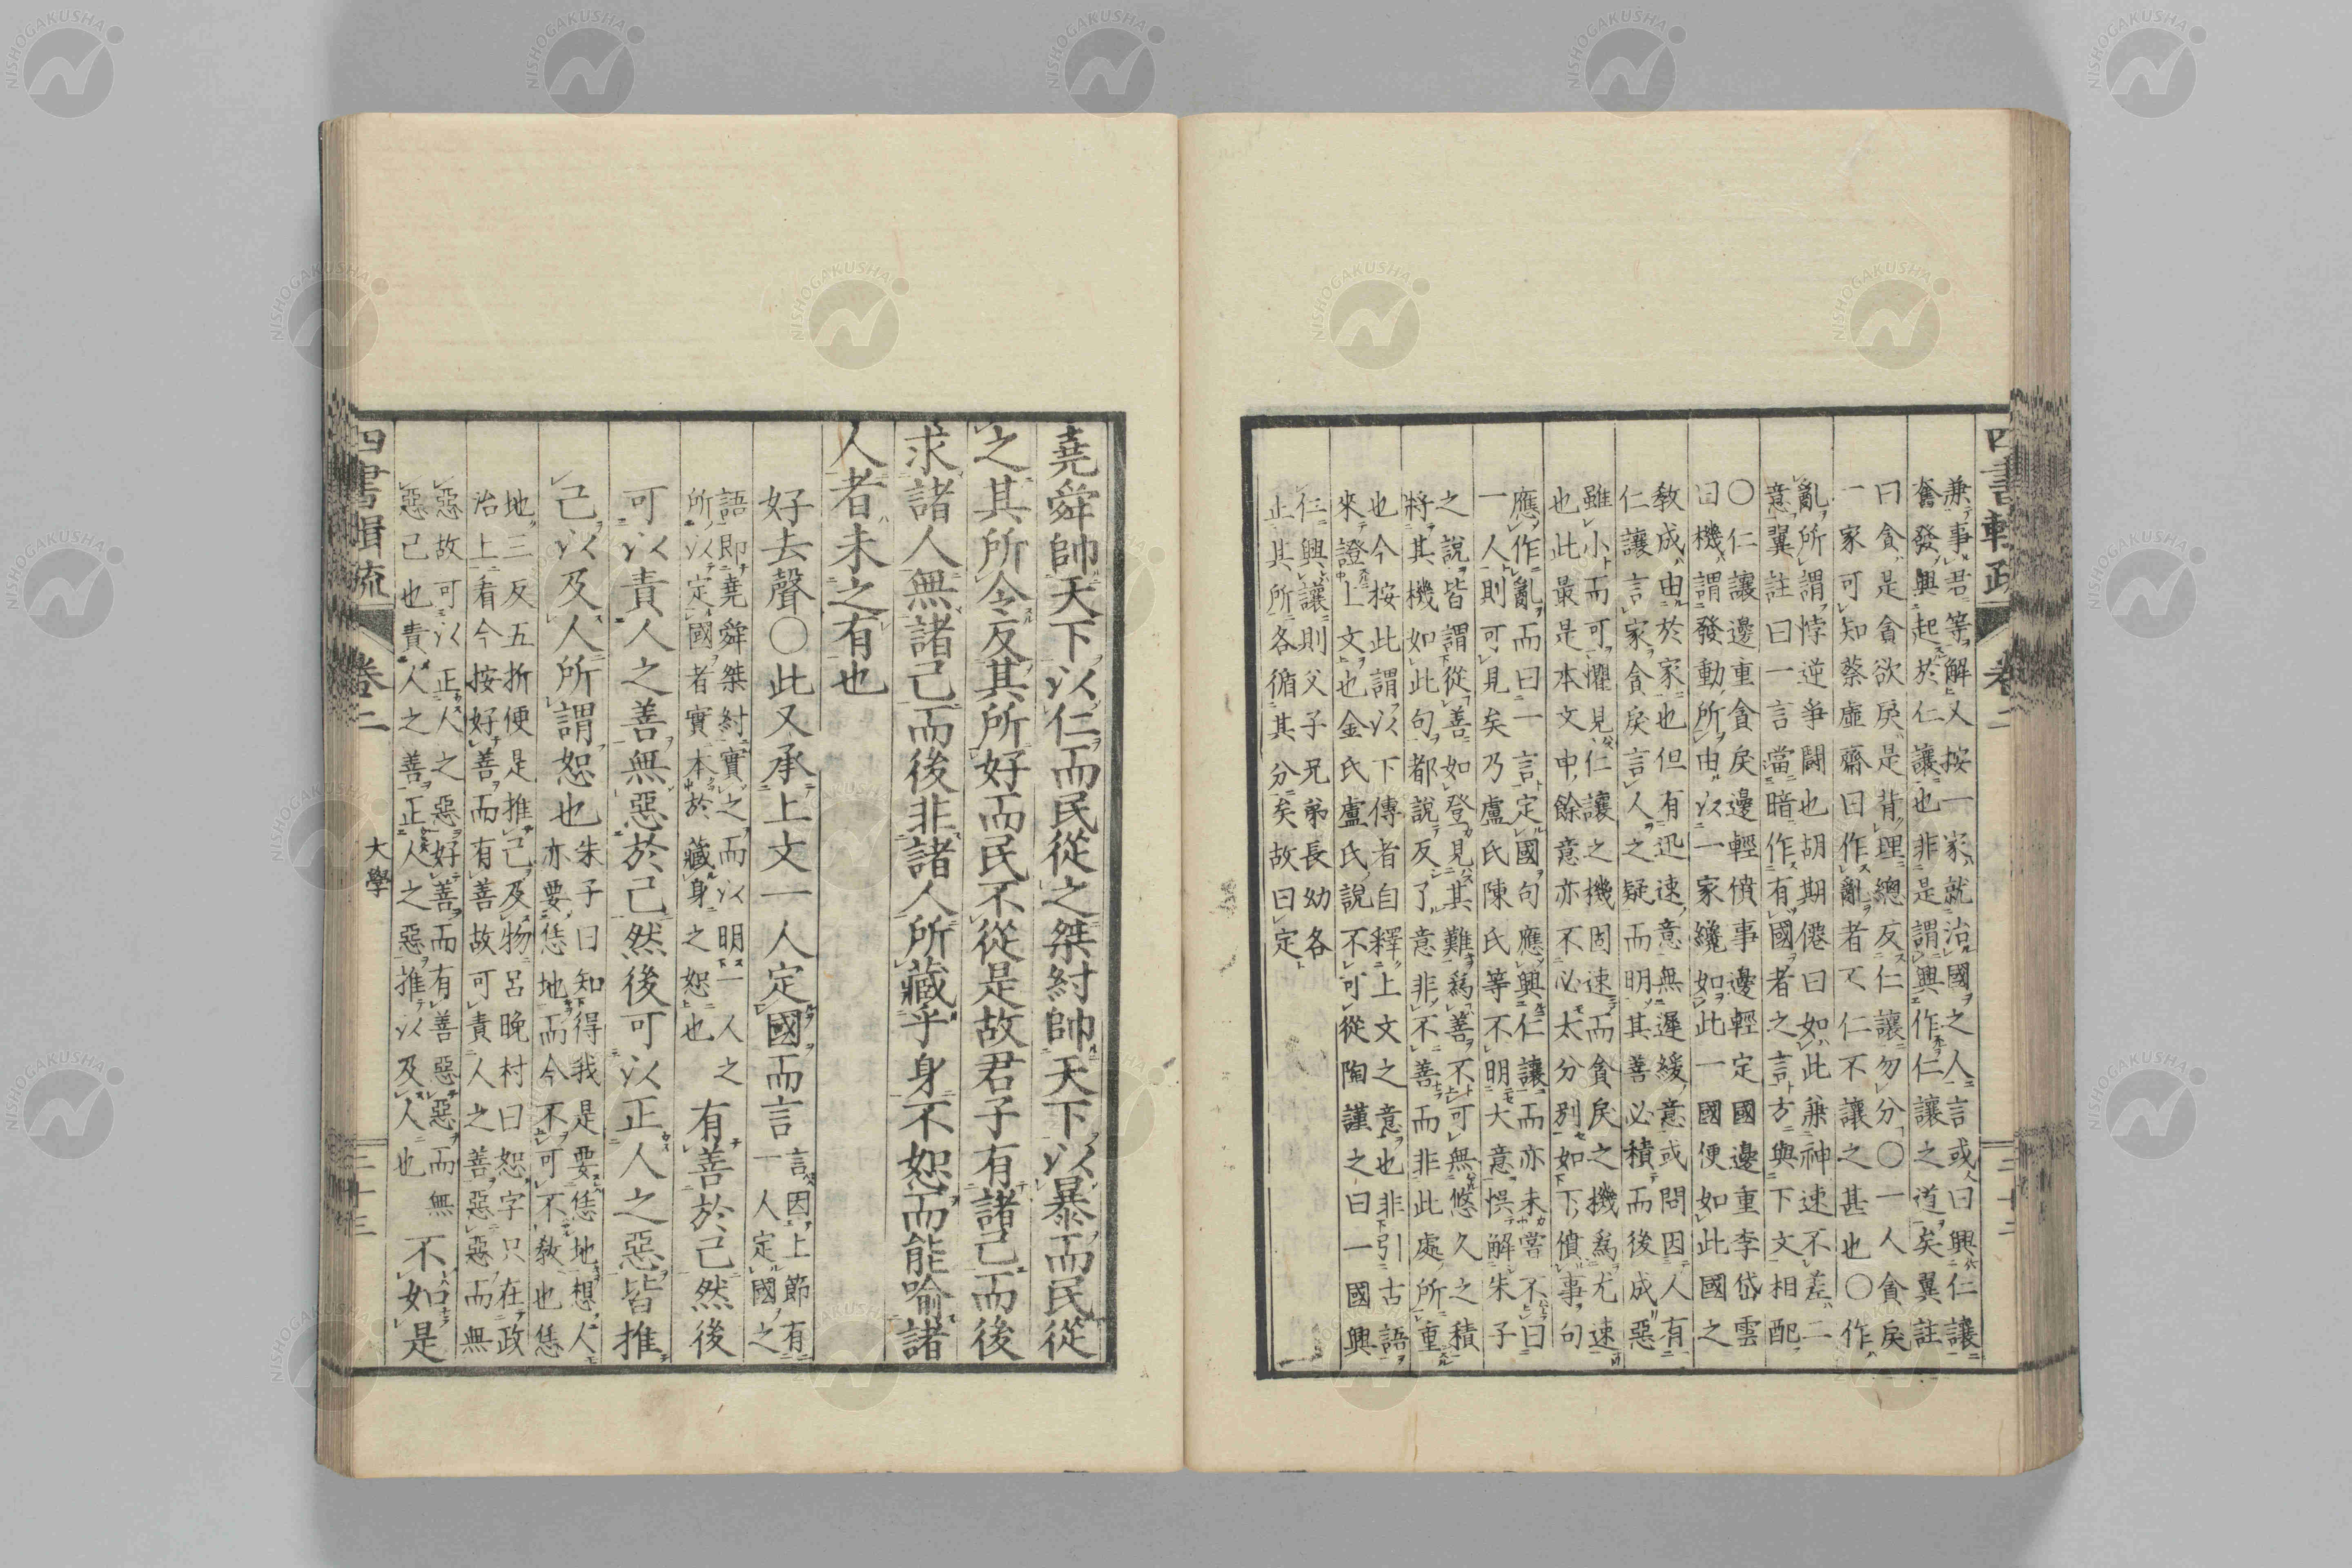 四書輯疏
卷二
二十二
兼事君等解又按一家就治國之人言或曰興仁讓
奮發興起於仁讓也非是謂興作仁讓之道矣翼註
曰貪是貪欲戾是背理總反仁讓勿分〇一人貪戾
一家可知蔡虛齋曰作亂者不仁不讓之甚也〇作
亂所謂悖逆爭鬪也胡期僊曰如此兼神速不差二
意翼註曰一言當暗作有國者之言方與下文相配
〇仁讓邊重貪戾邊輕僨事邊輕定國邊重李岱雲
曰機謂發動所由以一家纔如此一國便如此國之
教成由於家也但有迅速意無遲緩意或問因人有
仁讓言家貪戾言人之疑而明其善必積而後成惡
雖小而可懼見仁讓之機固速而貪戾之機為尤速
也此最是本文中餘意亦不必太分別如下僨事句
應作亂而曰一言定國句應興仁讓而亦未嘗不曰
一人則可見矣乃盧氏陳氏等不明大意悞解朱子
之說皆謂從善如登見其難為善不可無悠久之積
將其機如此句都說反了意非不善而非此處所重
也今按此謂以下傳者自釋上文之意也非引古語
來證上文也金氏盧氏說不可從陶謹之曰一國興
仁興讓則父子兄弟長幼各
止其所各循其分矣故曰定
堯舜帥天下以仁而民從之桀紂帥天下以暴而民從
之其所令反其所好而民不從是故君子有諸己而後
求諸人無諸己而後非諸人所藏乎身不恕而能喻諸
人者未之有也
好去聲〇此又承上文一人定國而言言因上節有
一人定國之
語即堯舜桀紂實之而以明一人之
所以定國者實本於藏身之恕也
有善於己然後
可以責人之善無惡於己然後可以正人之惡皆推
己以及人所謂恕也朱子曰知得我是要恁地想人
亦要恁地而今不可不教也恁
地三反五折便是推己及物呂晚村曰恕字只在政
治上看今按好善而有善故可責人之善惡惡而無
惡故可以正人之惡好善而有善惡惡而無
惡己也責人之善正人之惡推以及人也
不如是
四書輯疏
卷二
大學
二十三
NISHOGAKUSHA